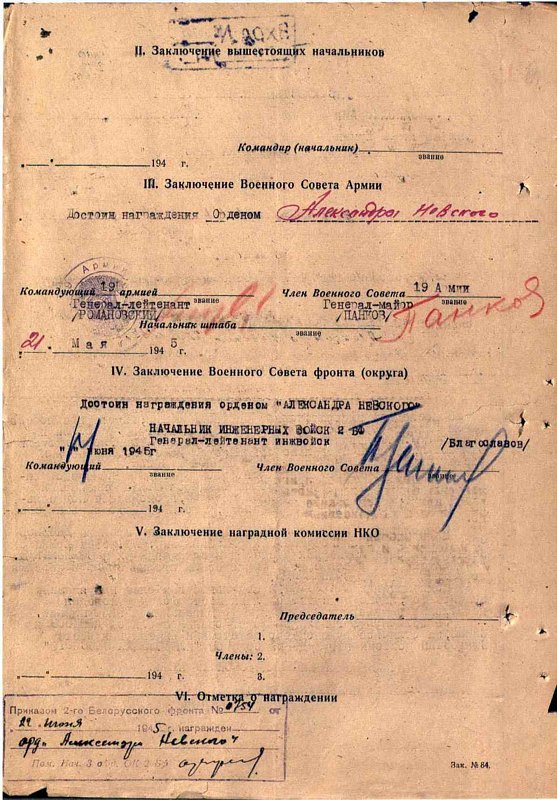 ВХОД №
II. Заключение вышестоящих начальников
Командир (начальник)
звание
„ “ 194 г.
III. Заключение Военного Совета Армии
Достоин награждения Орденом Александра Невского
Армии
Командующий 19 армией Член Военного Совета 19 А мии
Генерал-лейтенант звание Генерал-майор звание
/РОМАНОВСКИЙ/ /ПАНКОВ/ Панков
Начальник штаба
звание
21 Мая 194 5
IV. Заключение Военного Совета фронта (округа)
Достоин награждения орденом "АЛЕКСАНДРА НЕВСКОГО"
НАЧАЛЬНИК ИНЖЕНЕРНЫХ ВОЙСК 2 БФ
Генерал-лейтенант инжвойск /Благославов/
" " июня 1945г
Командующий Член Военного Совета
звание звание
„ “ 194 г.
V. Заключение наградной комиссии НКО
Председатель
1.
Члены: 2.
„ “ 194 г. 3.
VI. Отметка о награждении
Приказом 2-го Белорусского фронта № 0754 от
22 июня 1945 г. награжден
орд. Александра Невского
Пом. Нач. 3 отд. ОК 2 БФ
Зак. № 84.